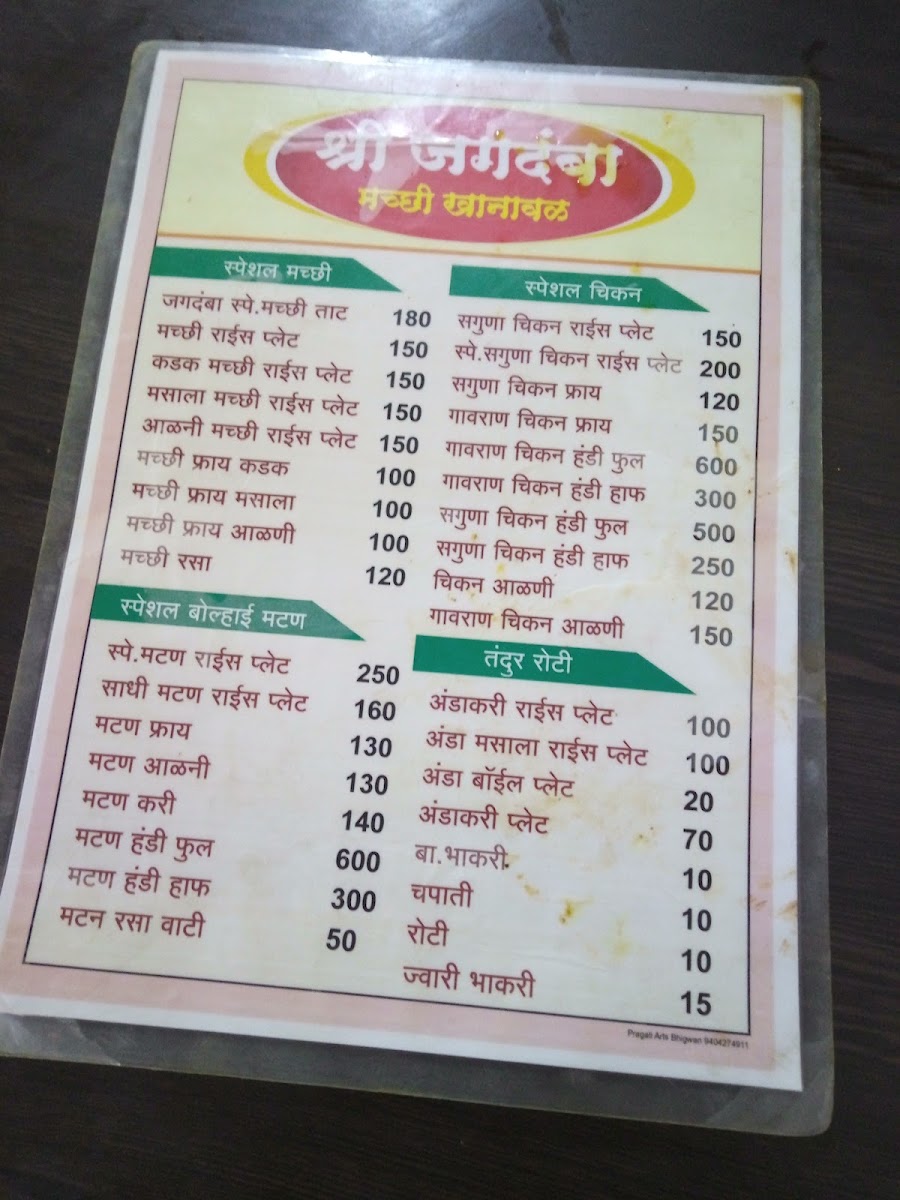 श्री जगदंबा
मच्छी खानावळ
स्पेशल मच्छी
जगदंबा स्पे.मच्छी ताट 180
मच्छी राईस प्लेट 150
कडक मच्छी राईस प्लेट 150
मसाला मच्छी राईस प्लेट 150
आळनी मच्छी राईस प्लेट 150
मच्छी फ्राय कडक 100
मच्छी फ्राय मसाला 100
मच्छी फ्राय आळणी 100
मच्छी रसा 120
स्पेशल बोल्हाई मटण
स्पे.मटण राईस प्लेट 250
साधी मटण राईस प्लेट 160
मटण फ्राय 130
मटण आळनी 130
मटण करी 140
मटण हंडी फुल 600
मटण हंडी हाफ 300
मटन रसा वाटी 50
स्पेशल चिकन
सगुणा चिकन राईस प्लेट 150
स्पे.सगुणा चिकन राईस प्लेट 200
सगुणा चिकन फ्राय 120
गावराण चिकन फ्राय 150
गावराण चिकन हंडी फुल 600
गावराण चिकन हंडी हाफ 300
सगुणा चिकन हंडी फुल 500
सगुणा चिकन हंडी हाफ 250
चिकन आळणी 120
गावराण चिकन आळणी 150
तंदुर रोटी
अंडाकरी राईस प्लेट 100
अंडा मसाला राईस प्लेट 100
अंडा बॉईल प्लेट 20
अंडाकरी प्लेट 70
बा.भाकरी 10
चपाती 10
रोटी 10
ज्वारी भाकरी 15
Pragati Arts Bhigwan 9404274911